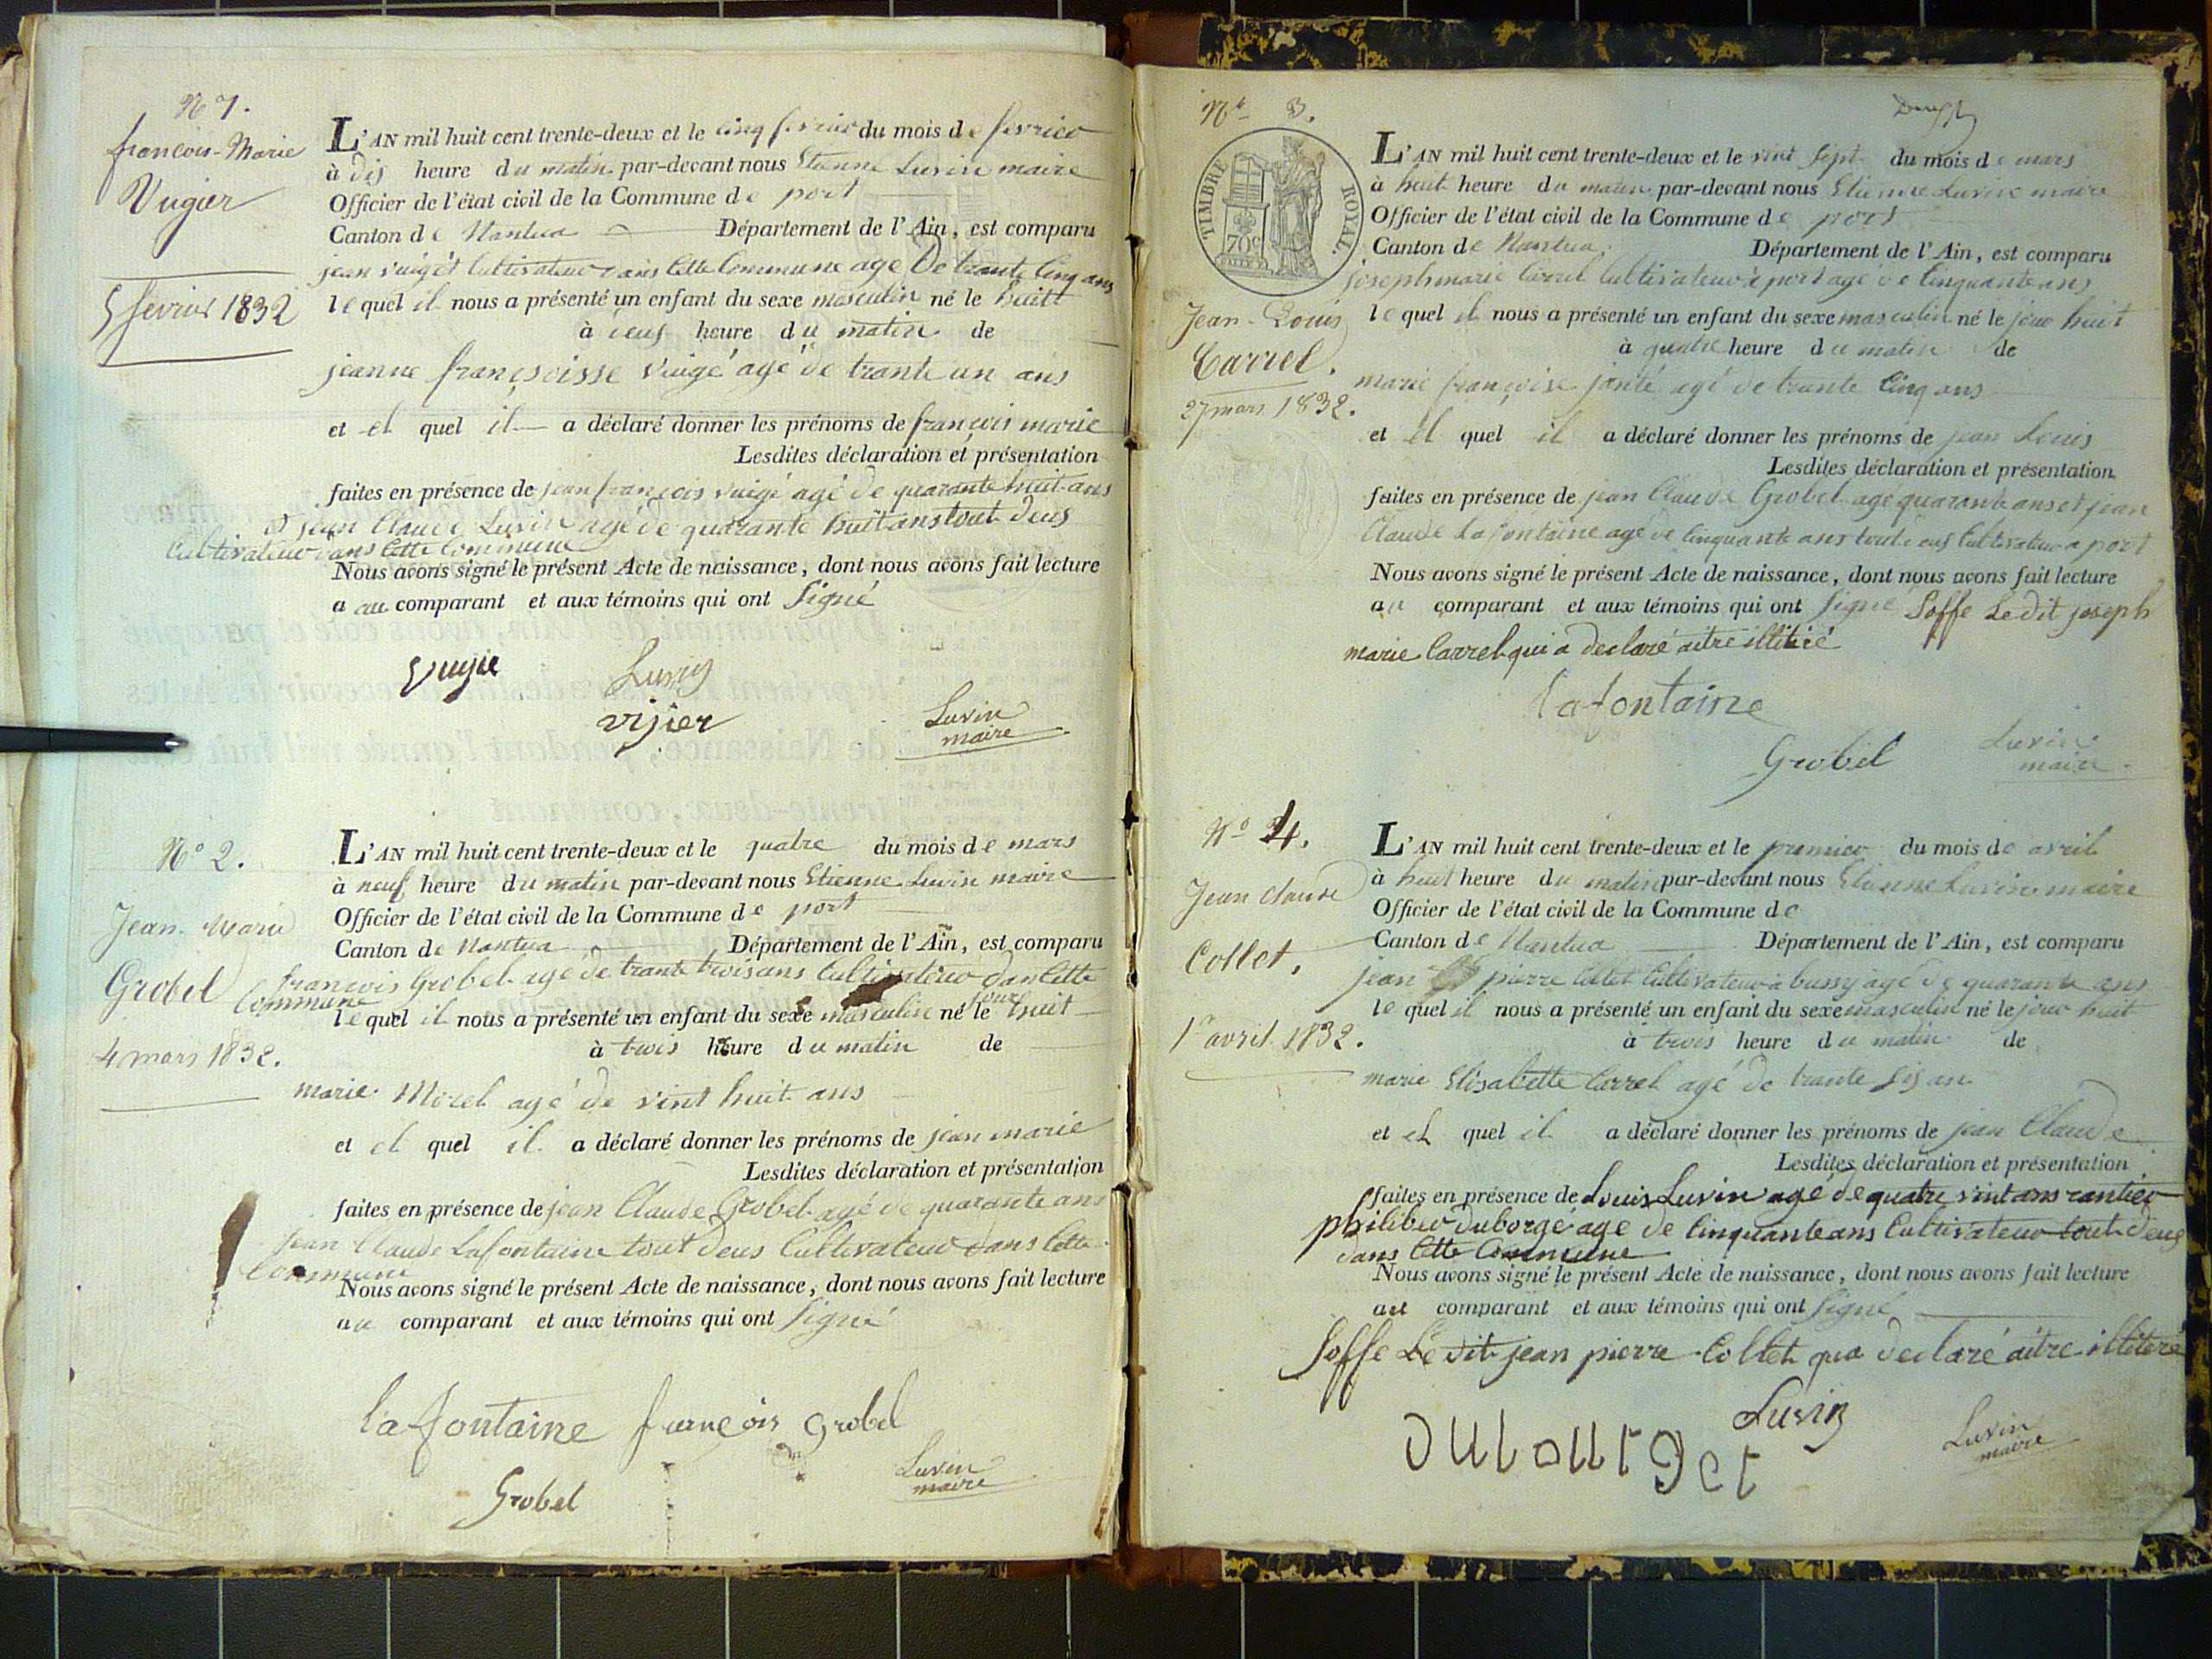 N° 1.
françois-Marie
Vugier
5 fevrier 1832
L'AN mil huit cent trente-deux et le cinq fevrier du mois de fevrier
à dis heure du matin par-devant nous Etienne Luvin maire
Officier de l'état civil de la Commune de port
Canton de Nantua Département de l'Ain, est comparu
jean vuiget Cultivateur dans Cette Commune age De trante Cinq ans
lequel il nous a présenté un enfant du sexe masculin né le huitt
à deus heure du matin de
jeanne françsoisse vuigé agé de trante un ans
et el quel il a déclaré donner les prénoms de françois marie
Lesdites déclaration et présentation
faites en présence de jean françois vuigé agé de quarante huit ans
et jean Claude Luvin agé de quarante huit ans tout deus
Cultivateur dans Cette Commune
Nous avons signé le présent Acte de naissance, dont nous avons fait lecture
a au comparant et aux témoins qui ont Signé
Luvin
vijier
Luvin
maire
N° 2.
Jean-Marie
Grobel
4 mars 1832.
L'AN mil huit cent trente-deux et le quatre du mois de mars
à neuf heure du matin par-devant nous Etienne Luvin maire
Officier de l'état civil de la Commune de port
Canton de Nantua Département de l'Ain, est comparu
françois Grobel agé de trante trois ans Cultivateur dan Cette
Commune
lequel il nous a présenté un enfant du sexe masculin né le jour huit
à trois heure du matin de
marie Morel agé de vint huit ans
et el quel il a déclaré donner les prénoms de jean marie
Lesdites déclaration et présentation
faites en présence de jean Claude Grobel agé de quarante ans
jean Claude Lafontaine tout deus Cultivateur dans Cette
Commune
Nous avons signé le présent Acte de naissance, dont nous avons fait lecture
au comparant et aux témoins qui ont Signé
lafontaine françois grobel
Grobel
Luvin
maire
N° 3.
TIMBRE ROYAL
70c
Jean-Louis
Carrel.
27 mars 1832.
L'AN mil huit cent trente-deux et le vint Sept du mois de mars
à huit heure du matin par-devant nous Etienne Luvin maire
Officier de l'état civil de la Commune de port
Canton de Nantua. Département de l'Ain, est comparu
joseph marie Carrel Cultivateur à port agé de Cinquante ans
lequel il nous a présenté un enfant du sexe masculin né le jour huit
à quatre heure du matin de
marie françoise janté agé de trante Cinq ans
et el quel il a déclaré donner les prénoms de jean Louis
Lesdites déclaration et présentation
faites en présence de jean Claude Grobel agé quarante ans et jean
Claude Lafontaine agé de Cinquante ans tout deus Cultivateur a port
Nous avons signé le présent Acte de naissance, dont nous avons fait lecture
au comparant et aux témoins qui ont Signé Soffe Ledit joseph
marie Carrel qui a declaré aitre illitiré
lafontaine
Grobel
Luvin
maire
N° 4.
Jean Claude
Collet.
1er avril 1832.
L'AN mil huit cent trente-deux et le premier du mois de avril
à huit heure du matin par-devant nous Etienne Luvin maire
Officier de l'état civil de la Commune de
Canton de Nantua Département de l'Ain, est comparu
jean pierre Collet Cultivateur à bussy agé de quarante ans
lequel il nous a présenté un enfant du sexe masculin né le jour huit
à trois heure du matin de
marie Elisabette Carrel agé de trante Sis an
et el quel il a déclaré donner les prénoms de jean Claude
Lesdites déclaration et présentation
faites en présence de Louis Luvin agé de quatre vint ans rantier
philiber duborgé agé de Cinquante ans Cultivateur tout deus
dans Cette Commune
Nous avons signé le présent Acte de naissance, dont nous avons fait lecture
au comparant et aux témoins qui ont Signé
Soffe Ledit jean pierre Collet qua declaré aitre illitéré
Luvin
Luvin
maire